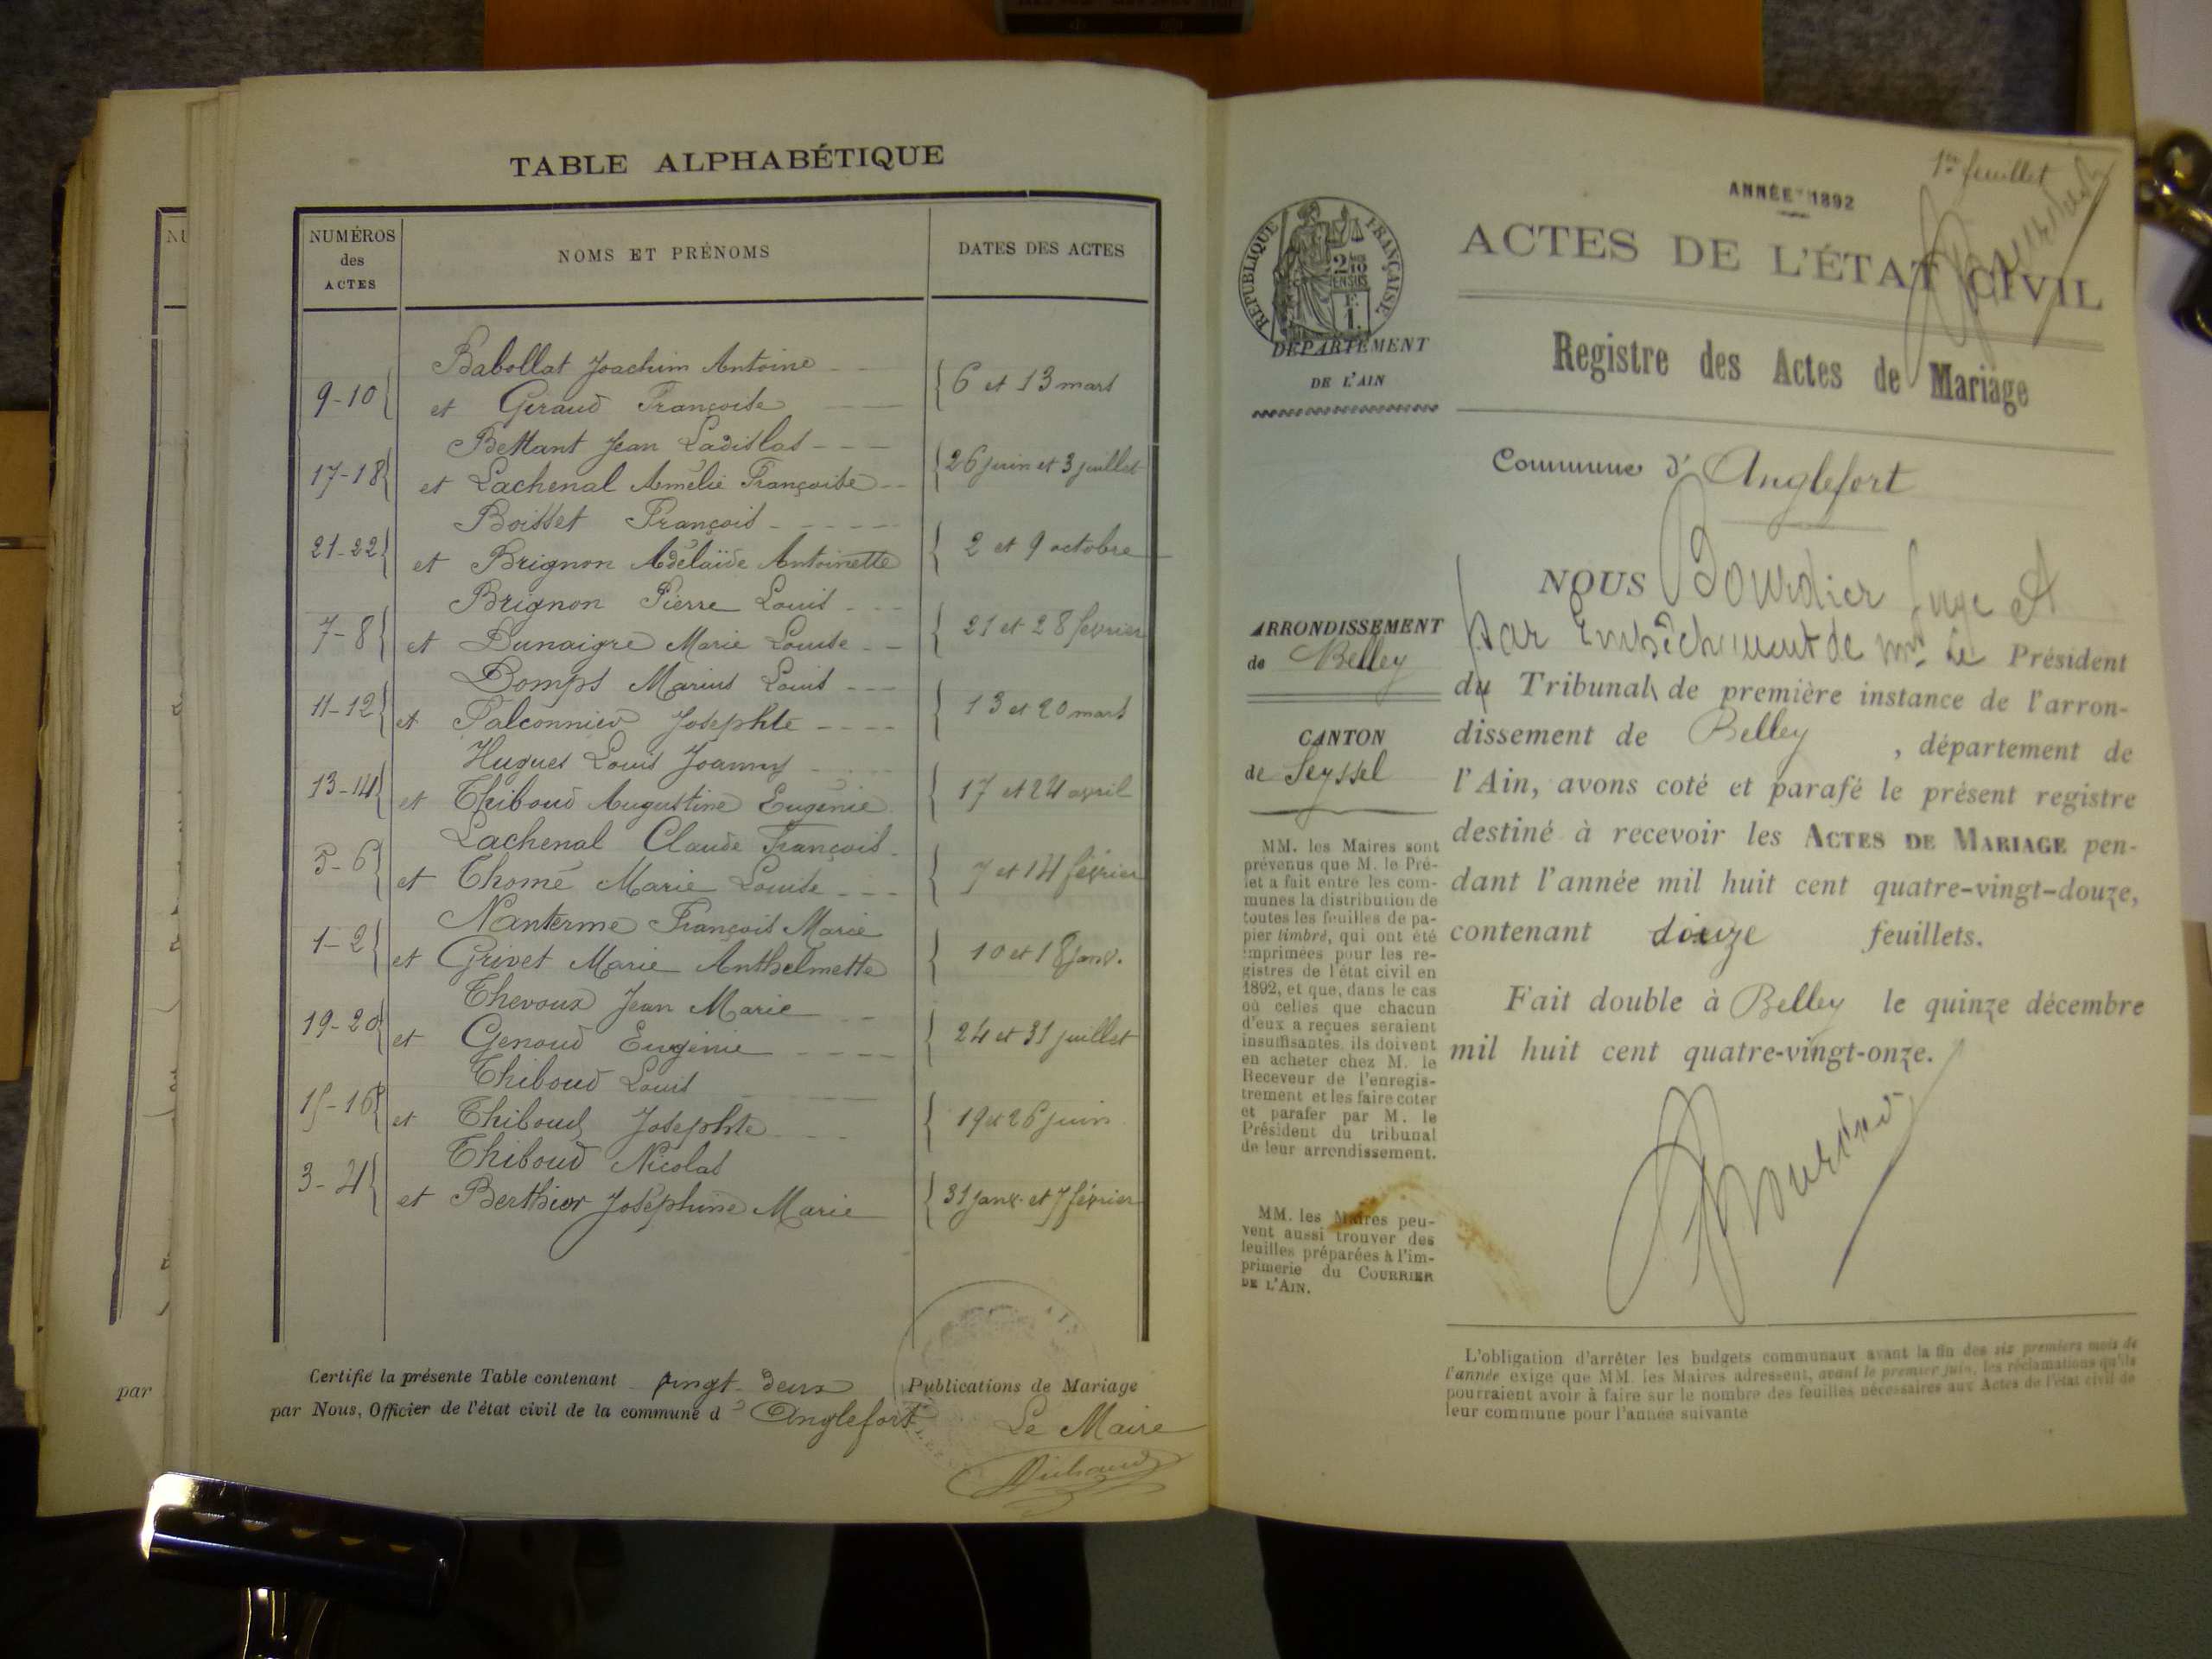 TABLE ALPHABÉTIQUE
NUMÉROS
des
ACTES
NOMS ET PRÉNOMS
DATES DES ACTES
Babollat Joachim Antoine
9-10 et Giraud Françoise 6 et 13 mars
Bettant Jean Ladislas
17-18 et Lachenal Amélie Françoise 26 juin et 3 juillet
Boisset François
21-22 et Brignon Adélaïde Antoinette 2 et 9 octobre
Brignon Pierre Louis
7-8 et Dunaigre Marie Louise 21 et 28 février
Bomps Marius Louis
11-12 et Falconnier Josephte 13 et 20 mars
Hugues Louis Joanny
13-14 et Thiboud Augustine Eugénie 17 et 24 avril
Lachenal Claude François
5-6 et Thomé Marie Louise 7 et 14 février
Nanterme François Marie
1-2 et Grivet Marie Anthelmette 10 et 18 janv.
Thevoux Jean Marie
19-20 et Genoud Eugénie 24 et 31 juillet
Thiboud Louis
15-16 et Thiboud Josephte 19 et 26 juin
Thiboud Nicolas
3-4 et Berthier Joséphine Marie 31 janv. et 7 février
Certifié la présente Table contenant vingt-deux Publications de Mariage
par Nous, Officier de l'état civil de la commune d'Anglefort
Le Maire
par
1er feuillet
ANNÉE 1892
ACTES DE L'ÉTAT CIVIL
RÉPUBLIQUE FRANÇAISE
DÉPARTEMENT
DE L'AIN
Registre des Actes de Mariage
Commune d'Anglefort
ARRONDISSEMENT
de Belley
CANTON
de Seyssel
NOUS Bourdier Juge
par Empêchement de Mr Le Président
du Tribunal de première instance de l'arron-
dissement de Belley, département de
l'Ain, avons coté et parafé le présent registre
destiné à recevoir les ACTES DE MARIAGE pen-
dant l'année mil huit cent quatre-vingt-douze,
contenant douze feuillets.
Fait double à Belley le quinze décembre
mil huit cent quatre-vingt-onze.
MM. les Maires sont
prévenus que M. le Pré-
fet a fait entre les com-
munes la distribution de
toutes les feuilles de pa-
pier timbré, qui ont été
imprimées pour les re-
gistres de l'état civil en
1892, et que, dans le cas
où celles que chacun
d'eux a reçues seraient
insuffisantes, ils doivent
en acheter chez M. le
Receveur de l'enregis-
trement et les faire coter
et parafer par M. le
Président du tribunal
de leur arrondissement.
MM. les Maires peu-
vent aussi trouver des
feuilles préparées à l'im-
primerie du COURRIER
DE L'AIN.
L'obligation d'arrêter les budgets communaux avant la fin des six premiers mois de
l'année exige que MM. les Maires adressent, avant le premier juin, les réclamations qu'ils
pourraient avoir à faire sur le nombre des feuilles nécessaires aux Actes de l'état civil de
leur commune pour l'année suivante